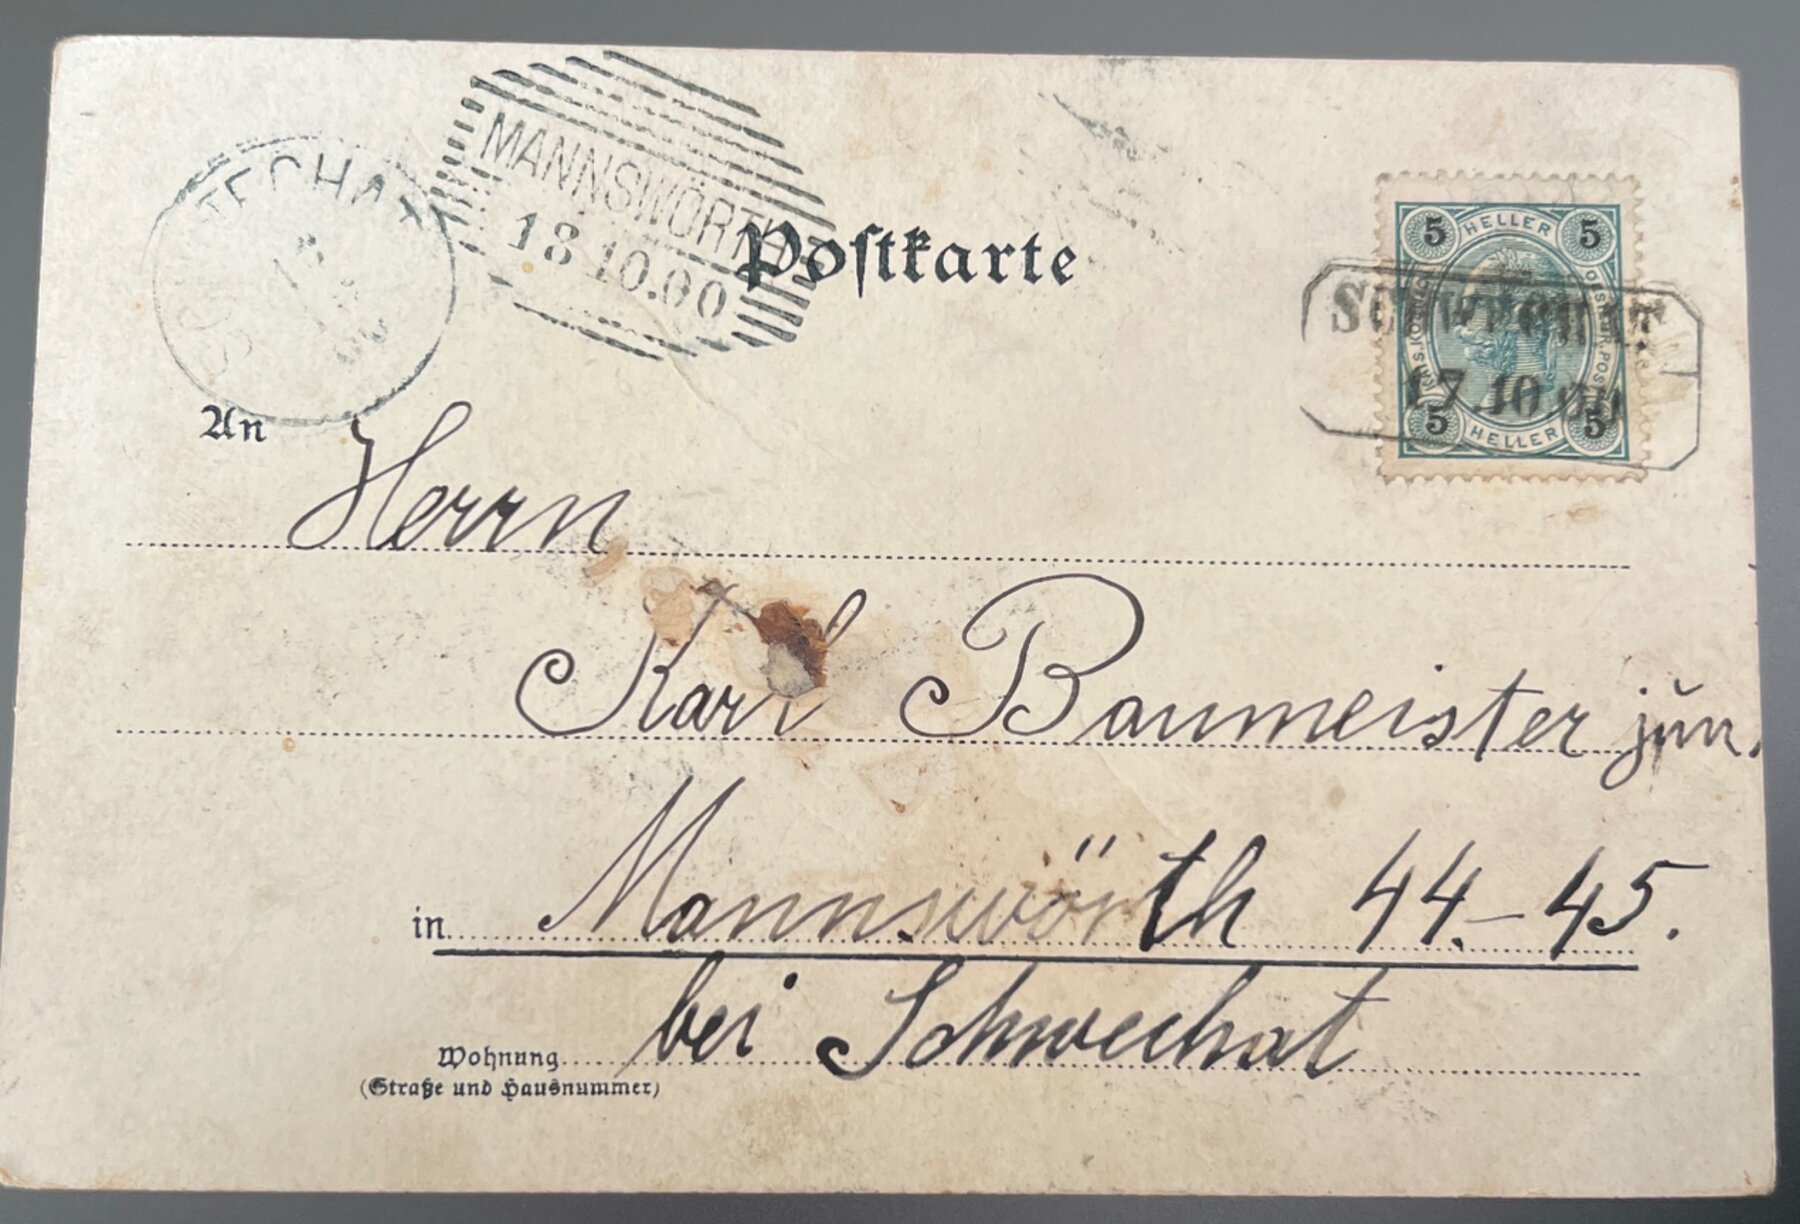 MANNSWÖRTH
18.10.00
Postkarte
5 HELLER 5
SCHWECHAT
17.10.00
5 HELLER 5
An
Herrn
Karl Baumeister jun.
in Mannswörth 44.–45.
bei Schwechat
Wohnung
(Straße und Hausnummer)